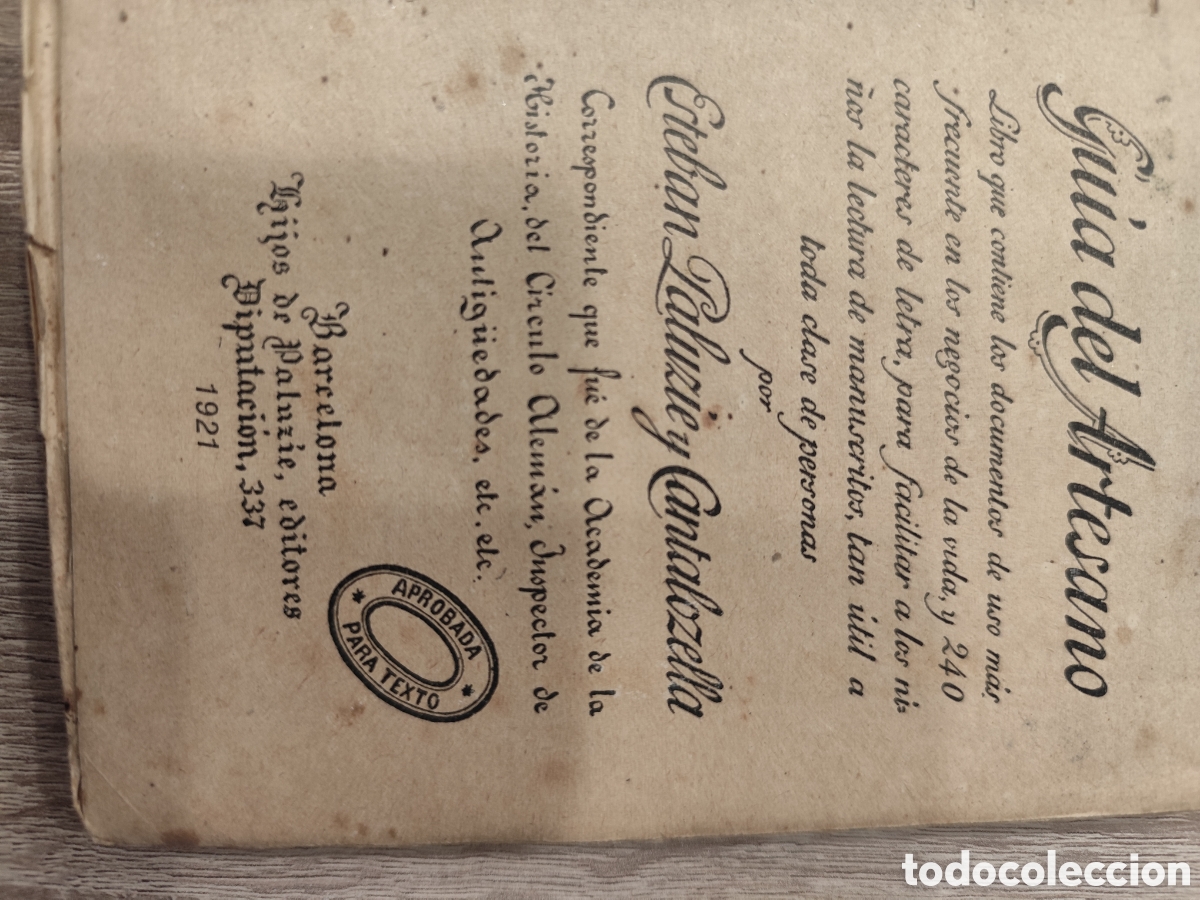 Guía del Artesano
Libro que contiene los documentos de uso más
frecuente en los negocios de la vida, y 240
caracteres de letra, para facilitar a los ni=
ños la lectura de manuscritos, tan útil a
toda clase de personas
por
Esteban Paluzíe y Cantalozella
Correspondiente que fué de la Academia de la
Historia, del Círculo Alemán, Inspector de
Antigüedades, etc. etc.
APROBADA
PARA TEXTO
Barcelona
Hijos de Paluzie, editores
Diputación, 337
1921
todocoleccion